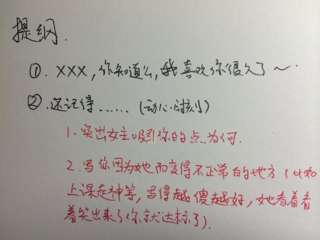 提纲.
①. XXX，你知道么，我喜欢你很久了～.
②. 还记得……（动心时刻）
1. 突出女主吸引你的点为何.
2. 写你因为她而变得不正常的地方（比如
上课走神等，写得越傻越好，她看着看
着笑出来了你就达标了）.